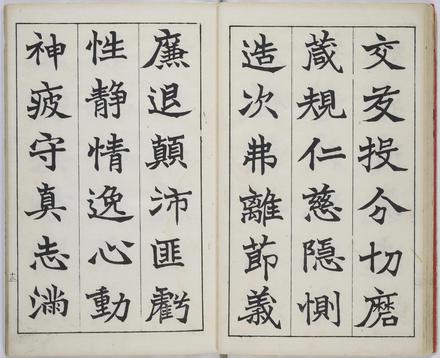 交友投分切磨
箴規仁慈隱惻
造次弗離節義
廉退顛沛匪虧
性靜情逸心動
神疲守真志滿